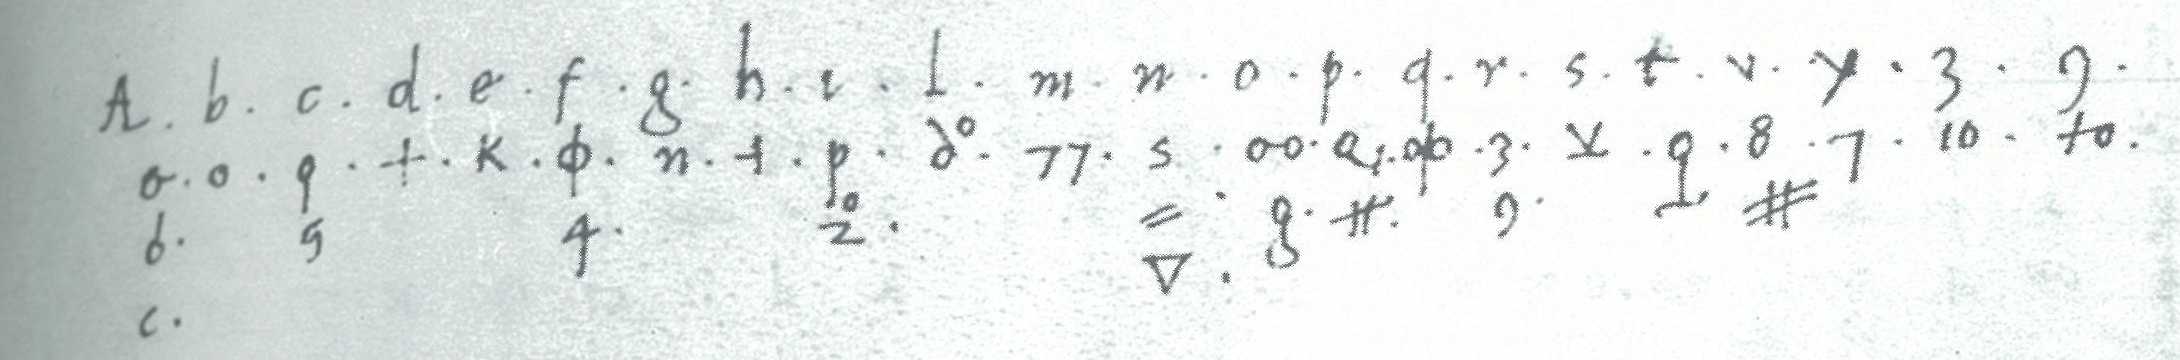 A. b. c. d. e. f. g. h. i. l. m. n. o. p. q. r. s. t. v. y. 3. 9.
o. o. q. +. K. ф. n. +. p. 77. s. oo. 3. q. 8. 7. 10. to.
b. 5 4. 2. = g. #. 9. #
c. ▽.